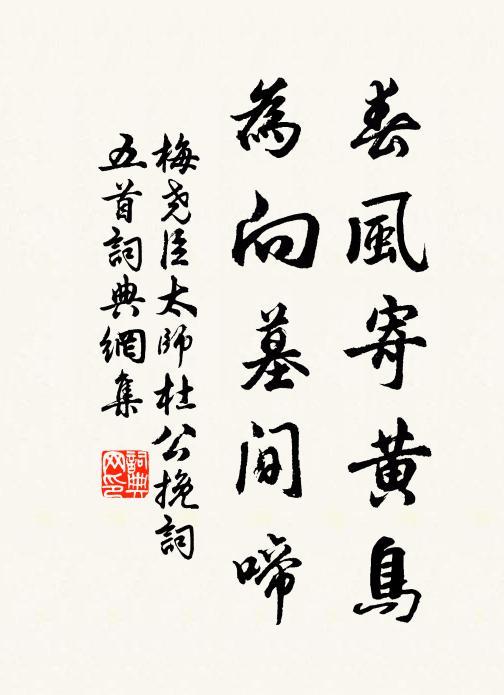 春風寄黃鳥
為向墓間啼
梅尧臣太師杜公挽詞
五首詞典網集
詞典
网印